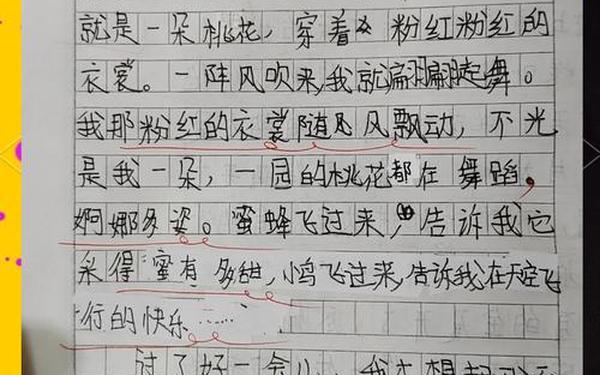 就是一朵桃花，穿着 粉红粉红的
衣裳。一阵风吹来，我就翩翩起舞。
我那粉红的衣裳随风飘动，不光
是我一朵，一园的桃花都在舞蹈，
婀娜多姿。蜜蜂飞过来，告诉我它
采得蜜有多甜，小鸟飞过来，告诉我在天空飞
行的快乐……
过了好一会儿，我才想起